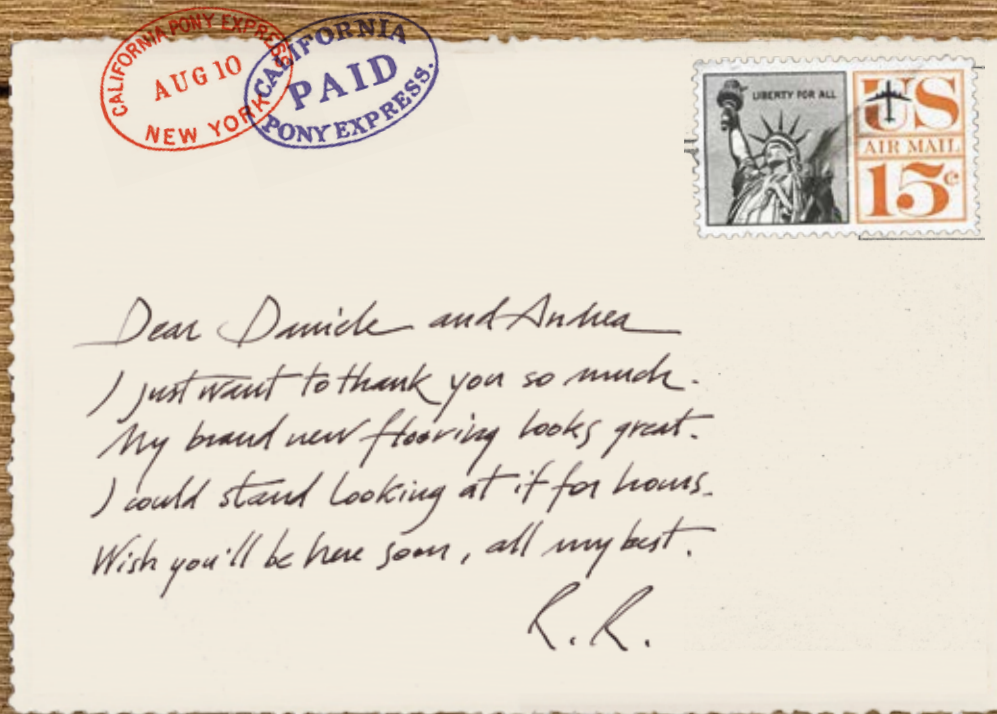 CALIFORNIA PONY EXPRESS
AUG 10
NEW YORK
CALIFORNIA
PAID
PONY EXPRESS.
LIBERTY FOR ALL
US
AIR MAIL
15c
Dear Daniele and Andrea
I just want to thank you so much.
My brand new flooring looks great.
I could stand looking at it for hours.
Wish you'll be here soon, all my best.
R.R.